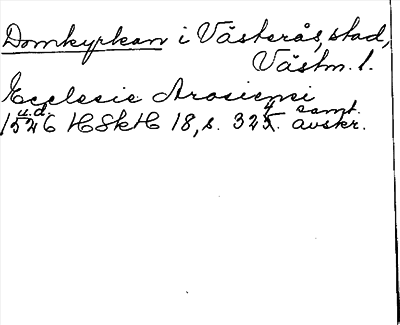 Domkyrkan i Västerås, stad,
Västm. l.
Ecclesie Arosiensi
1526 u.d. HSkH 18, s. 324. samt. avskr.